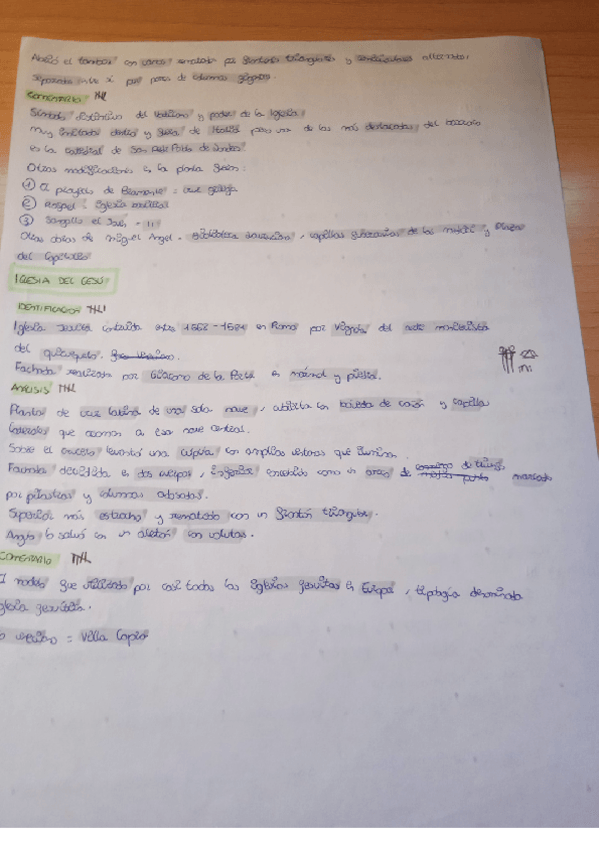 Abrió el tambor con vanos rematados por frontones triangulares y semicirculares alternados,
separados entre sí por pares de columnas gigantes.
COMENTARIO
Símbolo distintivo del Vaticano y poder de la Iglesia.
Muy imitada dentro y fuera de Italia pero una de las más destacadas del barroco
es la catedral de San Pablo de Londres.
Otras modificaciones en la planta fueron:
① El proyecto de Bramante = cruz griega
② Rafael : iglesia basilical
③ Sangallo el Joven = "
Otras obras de Miguel Angel = biblioteca laurenciana, capillas funerarias de los Médici y Plaza
del Capitolio
IGLESIA DEL GESÚ
IDENTIFICACIÓN
Iglesia jesuita construida entre 1568-1584 en Roma por Vignola del estilo manierista
del quinquecento.
Fachada realizada por Giacomo de la Porta en mármol y piedra.
ANÁLISIS
Planta de cruz latina de una sola nave, cubierta con bóveda de cañón y capillas
laterales que se abren a esa nave central.
Sobre el crucero levantó una cúpula con amplias ventanas que iluminan.
Fachada dividida en dos cuerpos, inferior concebido como un arco de triunfo, marcado
por pilastras y columnas adosadas.
Superior más estrecho y rematado con un frontón triangular.
Ángulo lo salvó con un aletón con volutas.
COMENTARIO
modelo que utilizado por casi todas las iglesias jesuitas en Europa, tipología denominada
iglesia jesuítica.
= Villa Capra